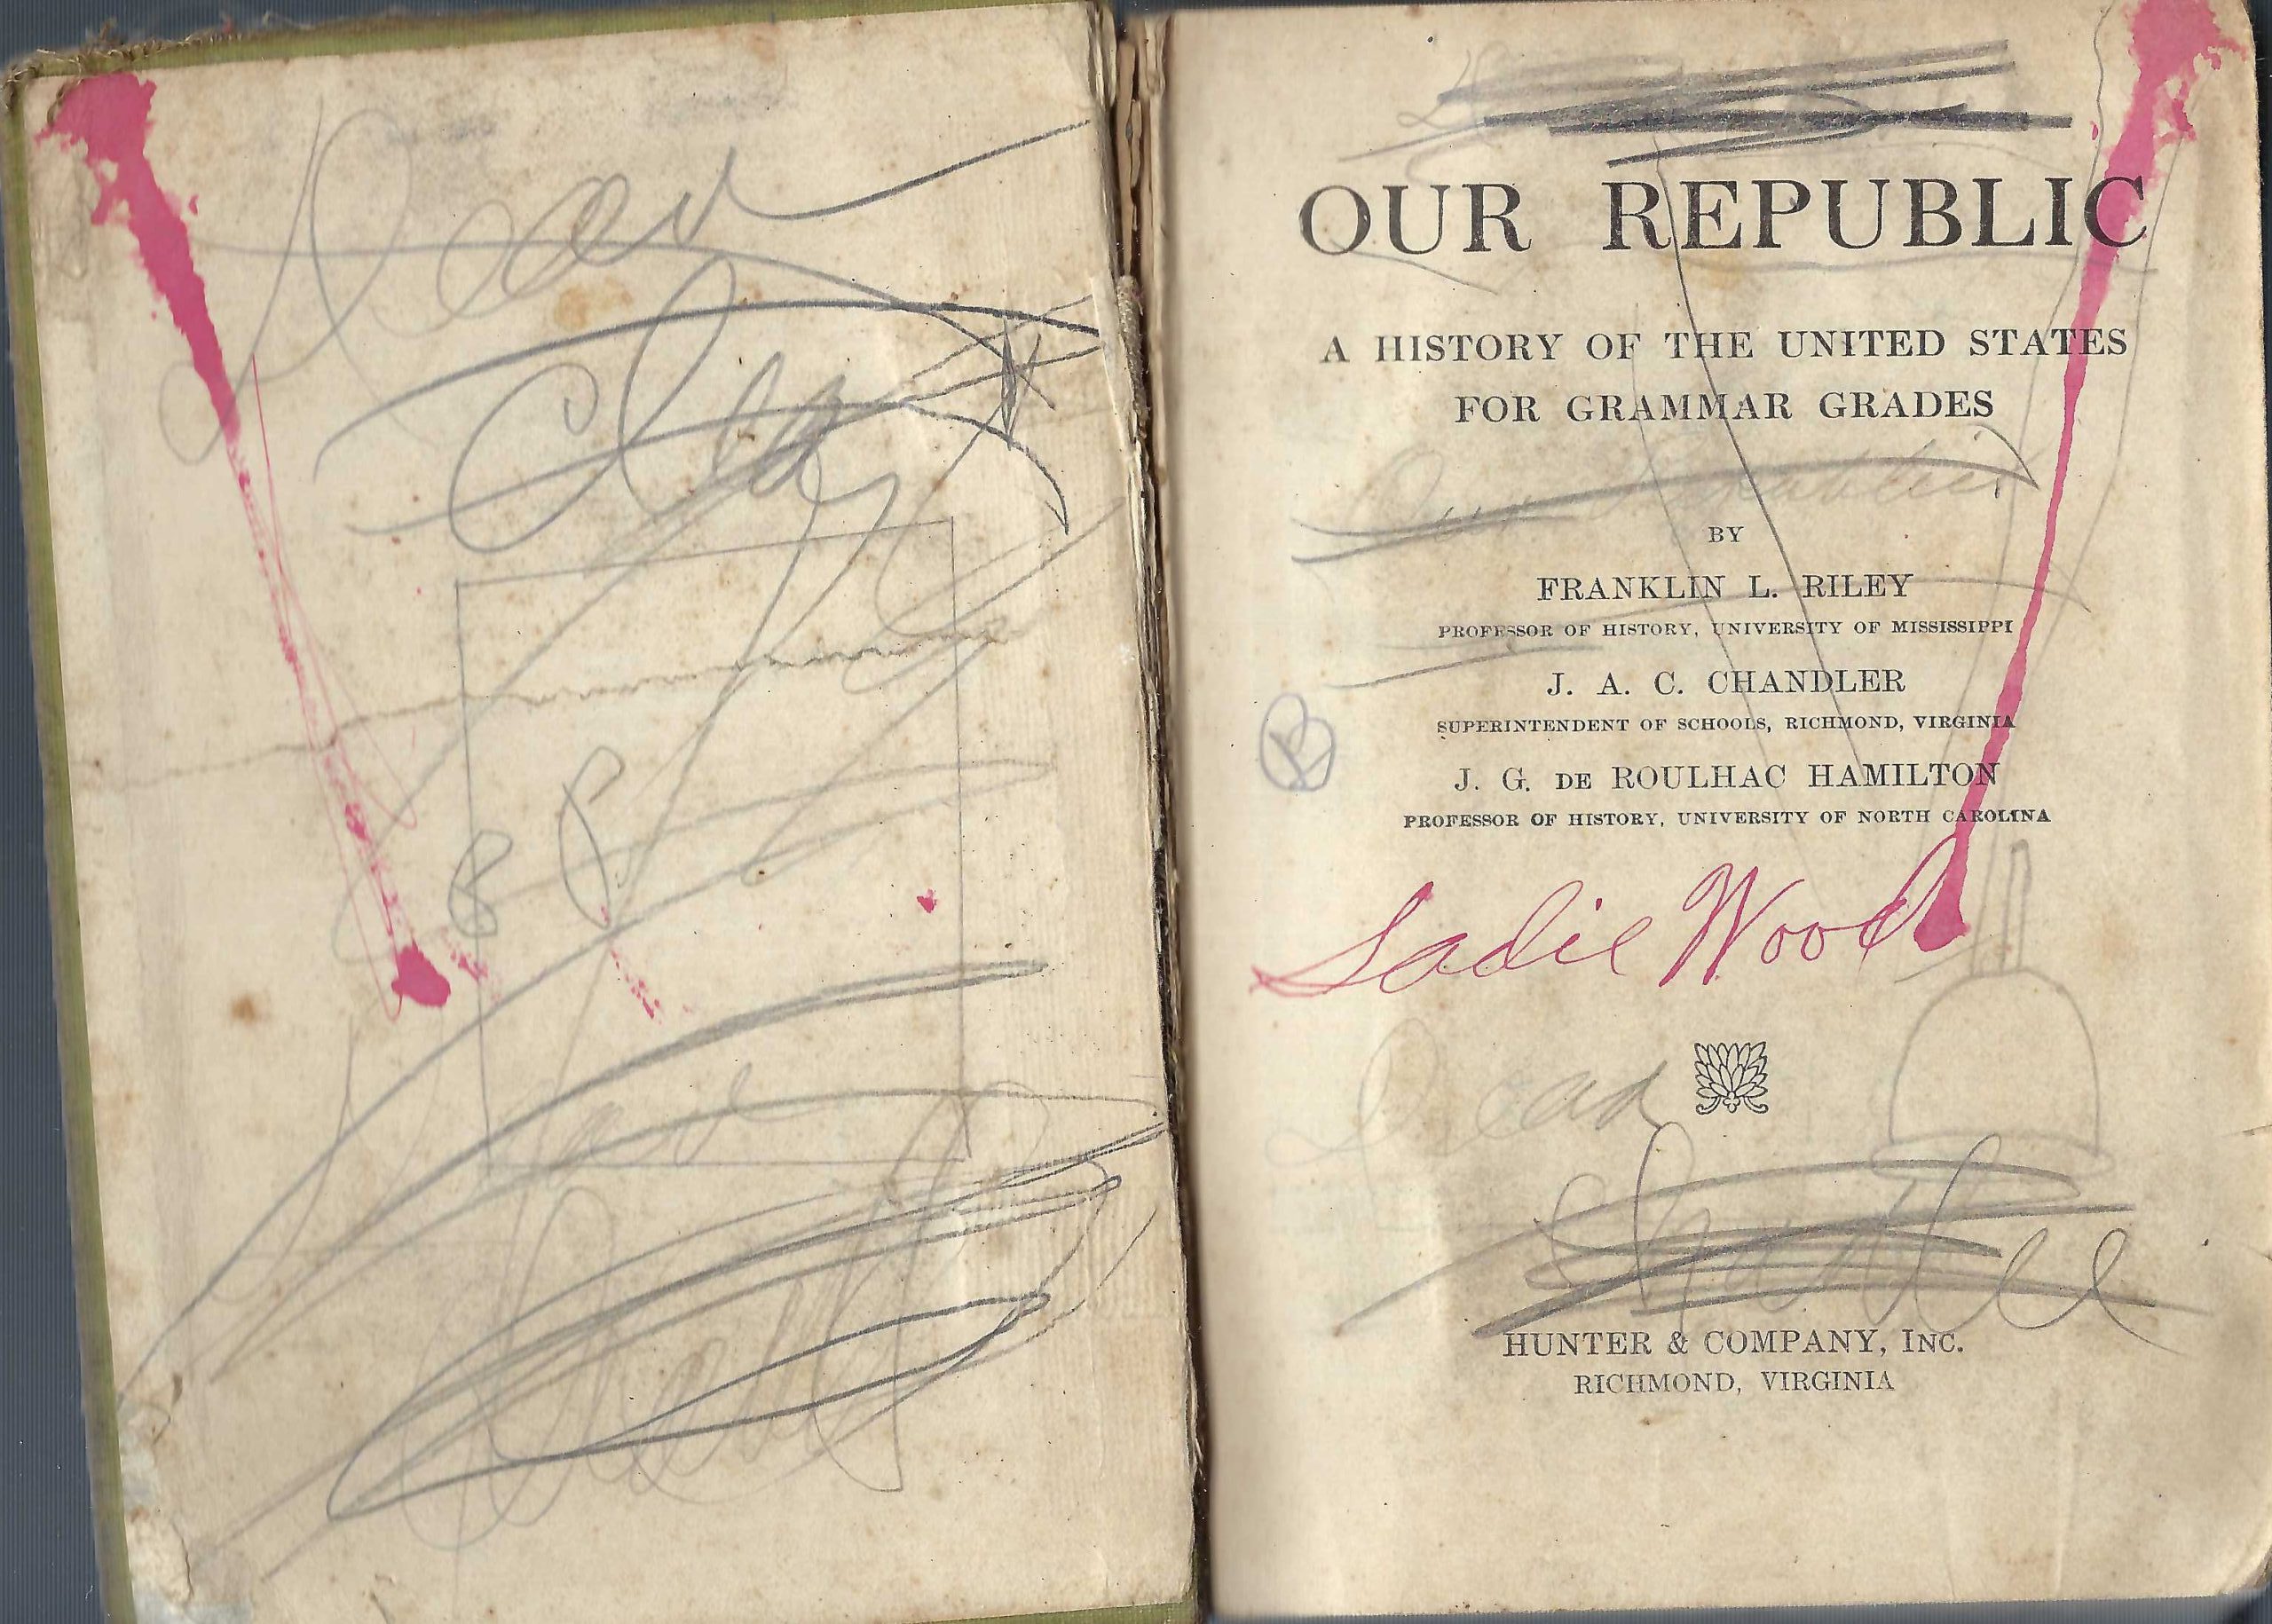 OUR REPUBLIC
A HISTORY OF THE UNITED STATES
FOR GRAMMAR GRADES
Our Republic
BY
FRANKLIN L. RILEY
PROFESSOR OF HISTORY, UNIVERSITY OF MISSISSIPPI
J. A. C. CHANDLER
SUPERINTENDENT OF SCHOOLS, RICHMOND, VIRGINIA
B
J. G. DE ROULHAC HAMILTON
PROFESSOR OF HISTORY, UNIVERSITY OF NORTH CAROLINA
Sadie Wood
HUNTER & COMPANY, INC.
RICHMOND, VIRGINIA